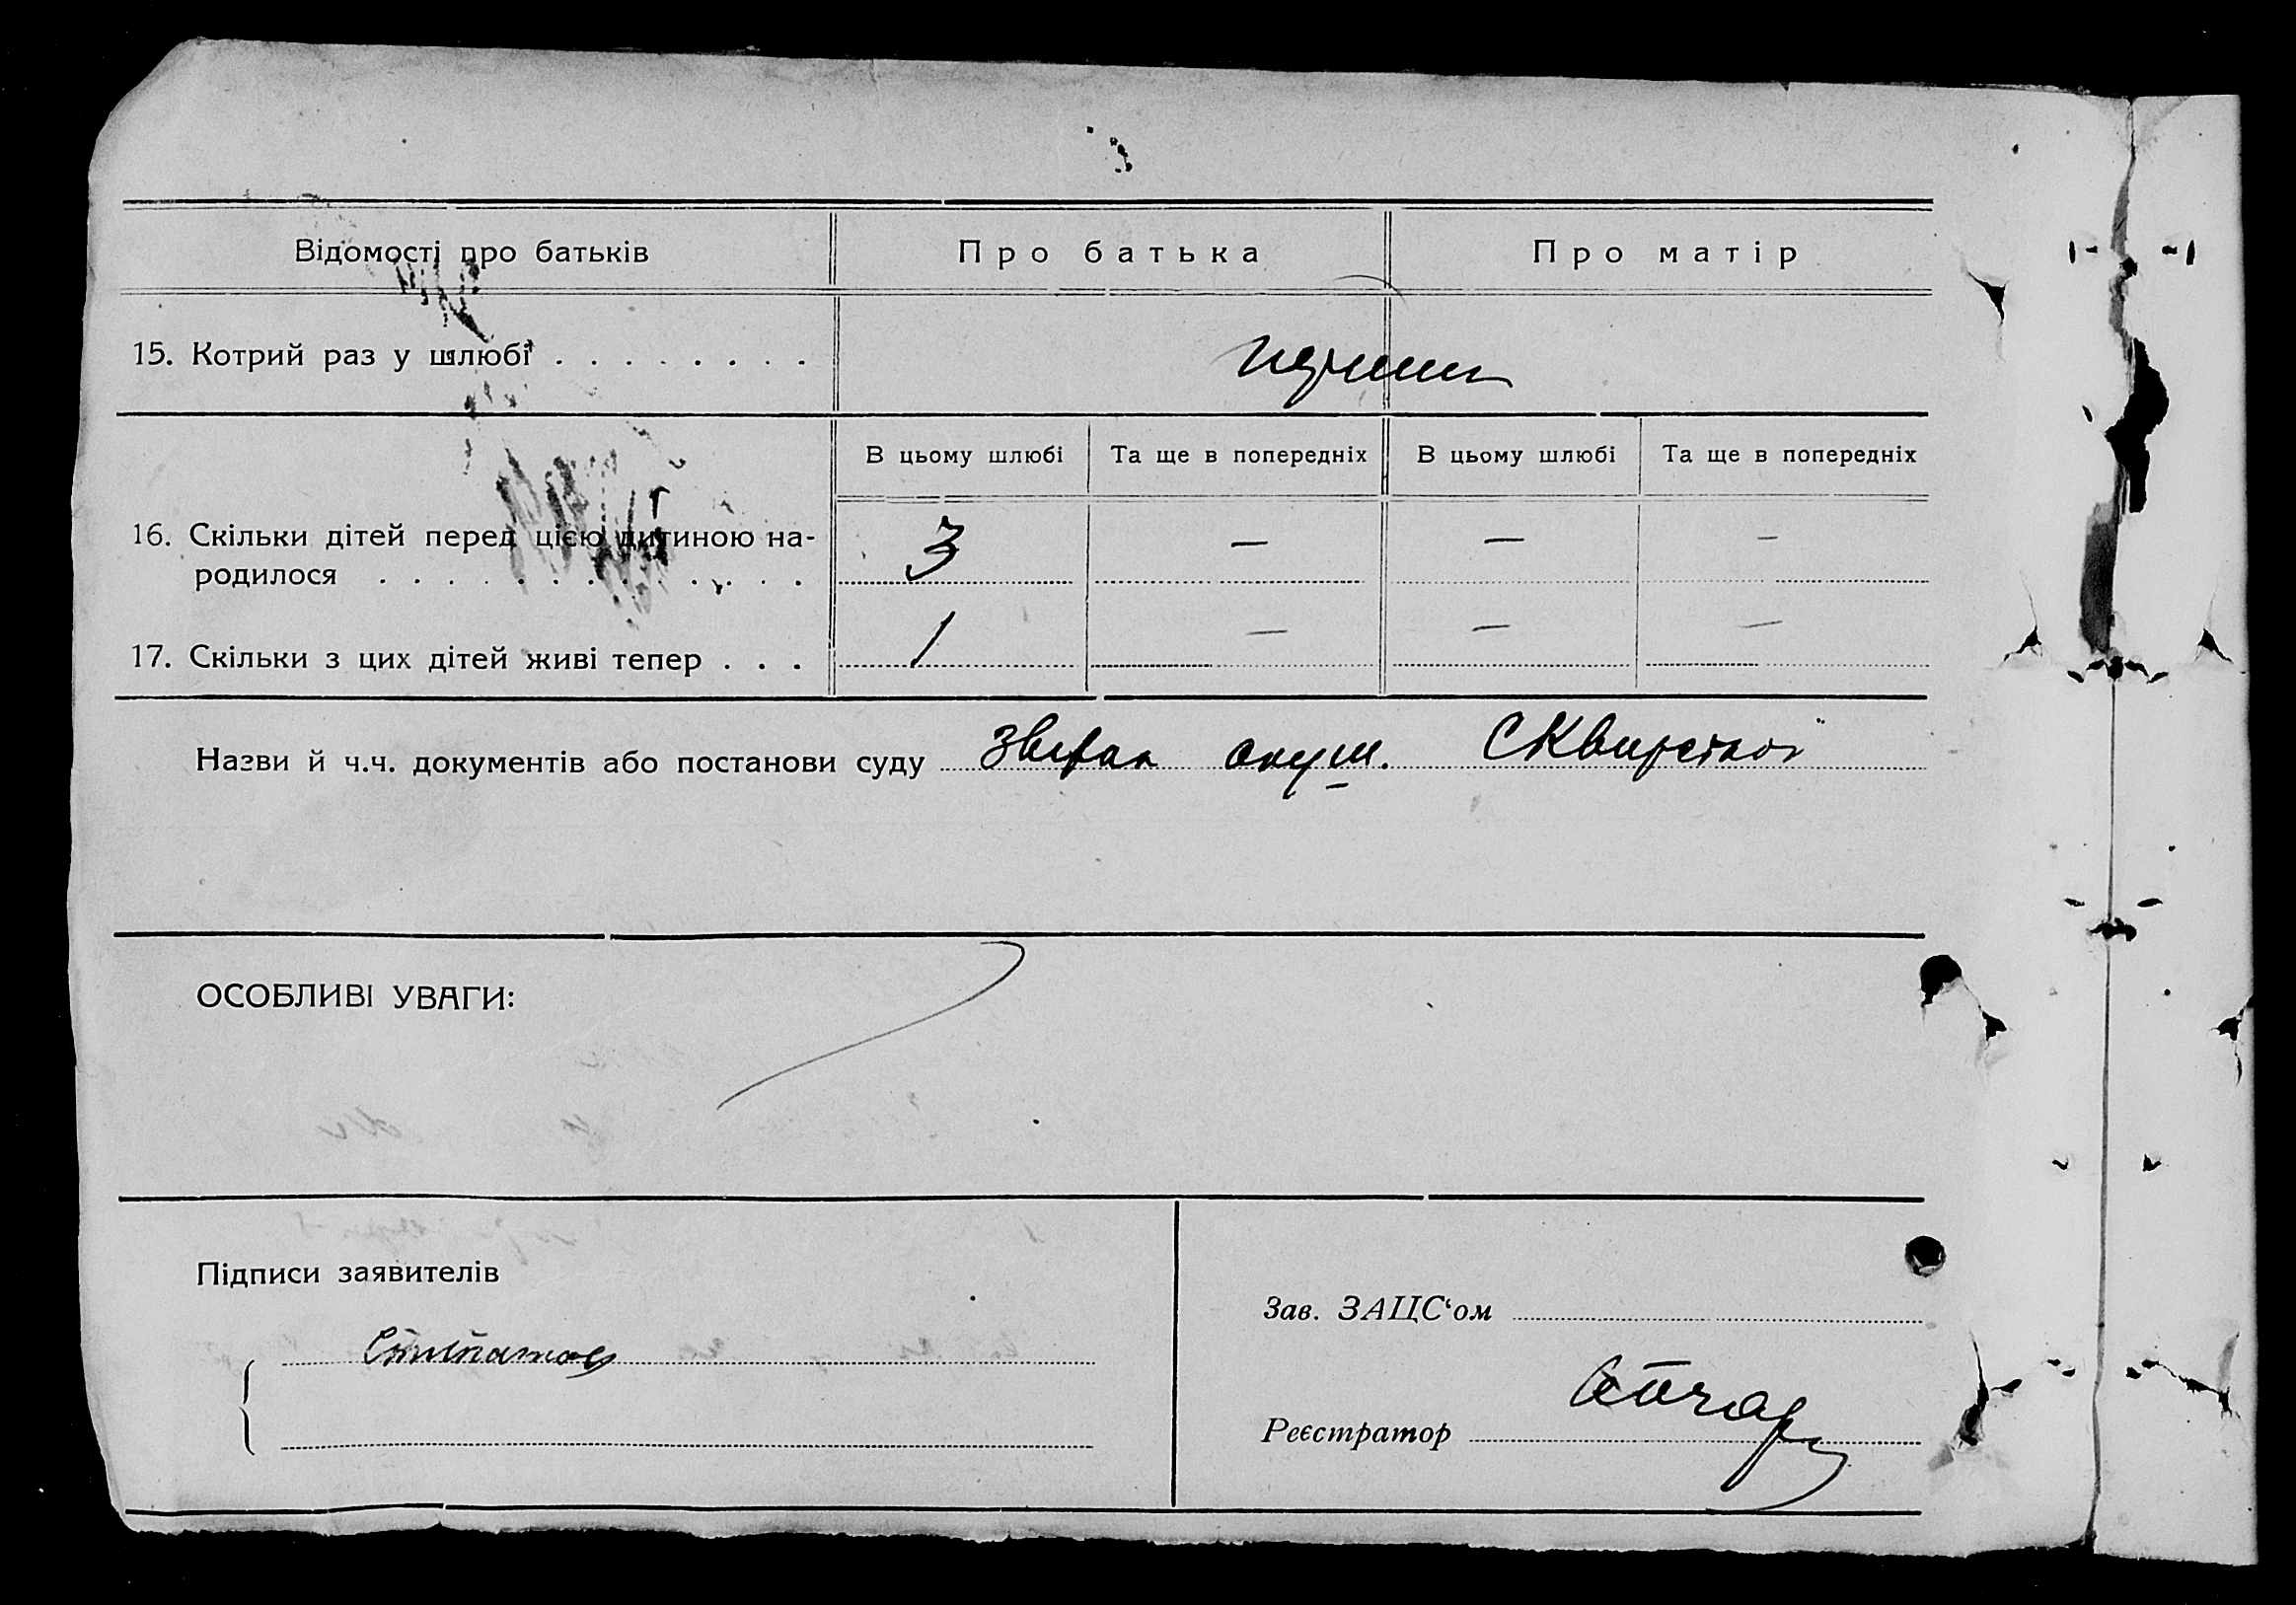 Відомості про батьків Про батька Про матір
15. Котрий раз у шлюбі . . . . . . . .
В цьому шлюбі Та ще в попередніх В цьому шлюбі Та ще в попередніх
16. Скільки дітей перед цією дитиною на-
родилося . . . . . . . . . . . . . 3 — — —
17. Скільки з цих дітей живі тепер . . . 1 — — —
Назви й ч.ч. документів або постанови суду акуш. Сквирської
ОСОБЛИВІ УВАГИ:
Підписи заявителів
Зав. ЗАЦС‘ом
Реєстратор